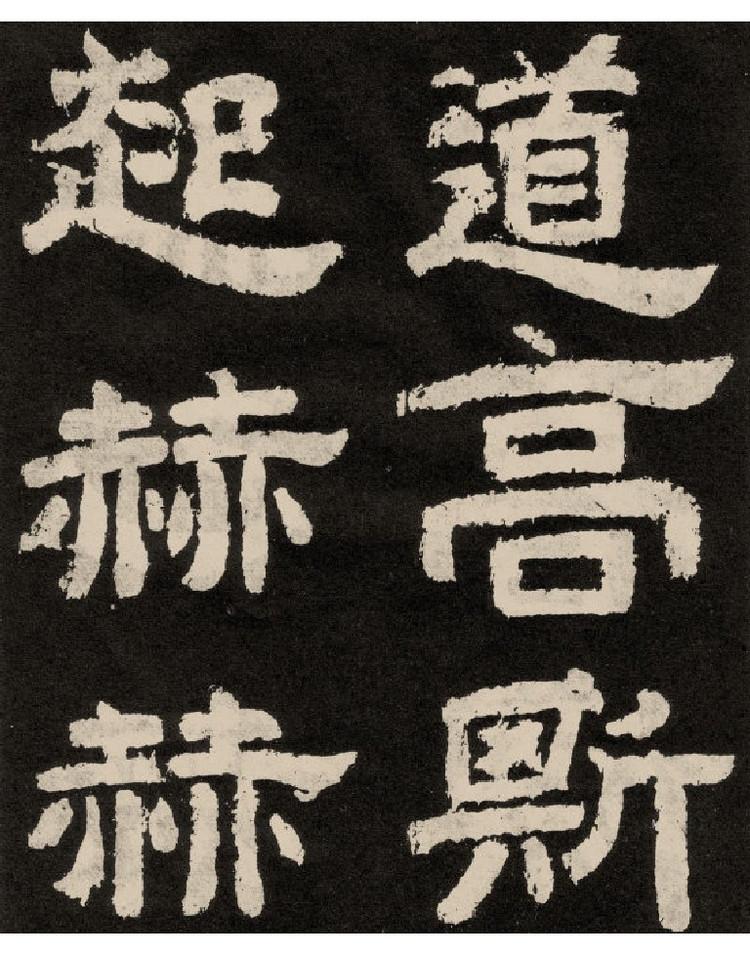 道高斯
起赫赫